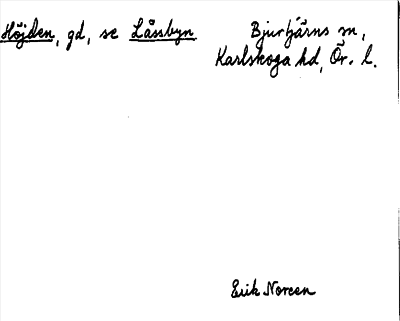 Höjden, gd, se Låssbyn
Bjurtjärns sn,
Karlskoga hd, Ör. l.
Erik Noreen